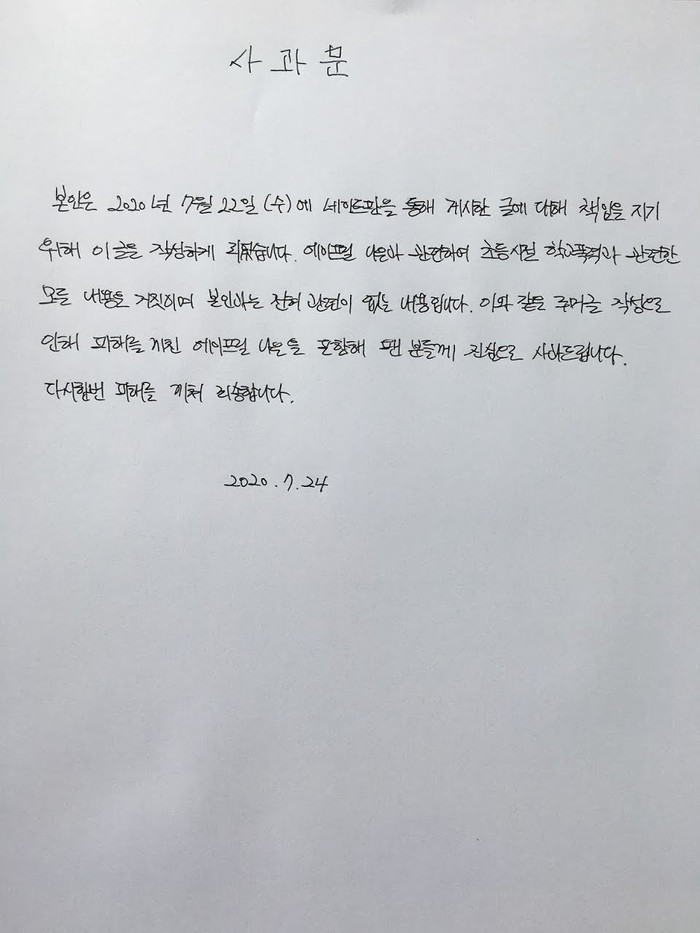 사과문
본인은 2020년 7월 22일 (수)에 네이트판을 통해 게시한 글에 대해 책임을 지기
위해 이 글을 작성하게 되었습니다. 에이프릴 나은과 관련하여 초등시절 학교폭력과 관련한
모든 내용은 거짓이며 본인과는 전혀 관련이 없는 내용입니다. 이와 같은 주머글 작성으로
인해 피해를 끼친 에이프릴 나은을 포함해 팬 분들께 진심으로 사과드립니다.
다시한번 피해를 끼쳐 죄송합니다.
2020.7.24